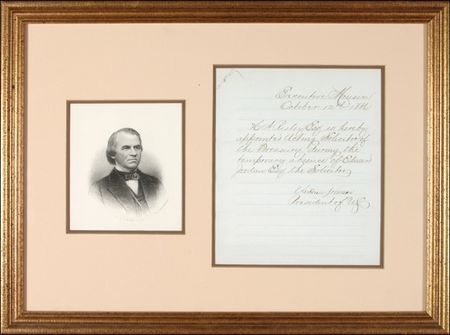 Executive Mansion
October 12th, 186
is hereby
appointed Acting Solicitor of
the Treasury during the
temporary absence of Edward
Jordan Esq the Solicitor
Andrew Johnson
President of US